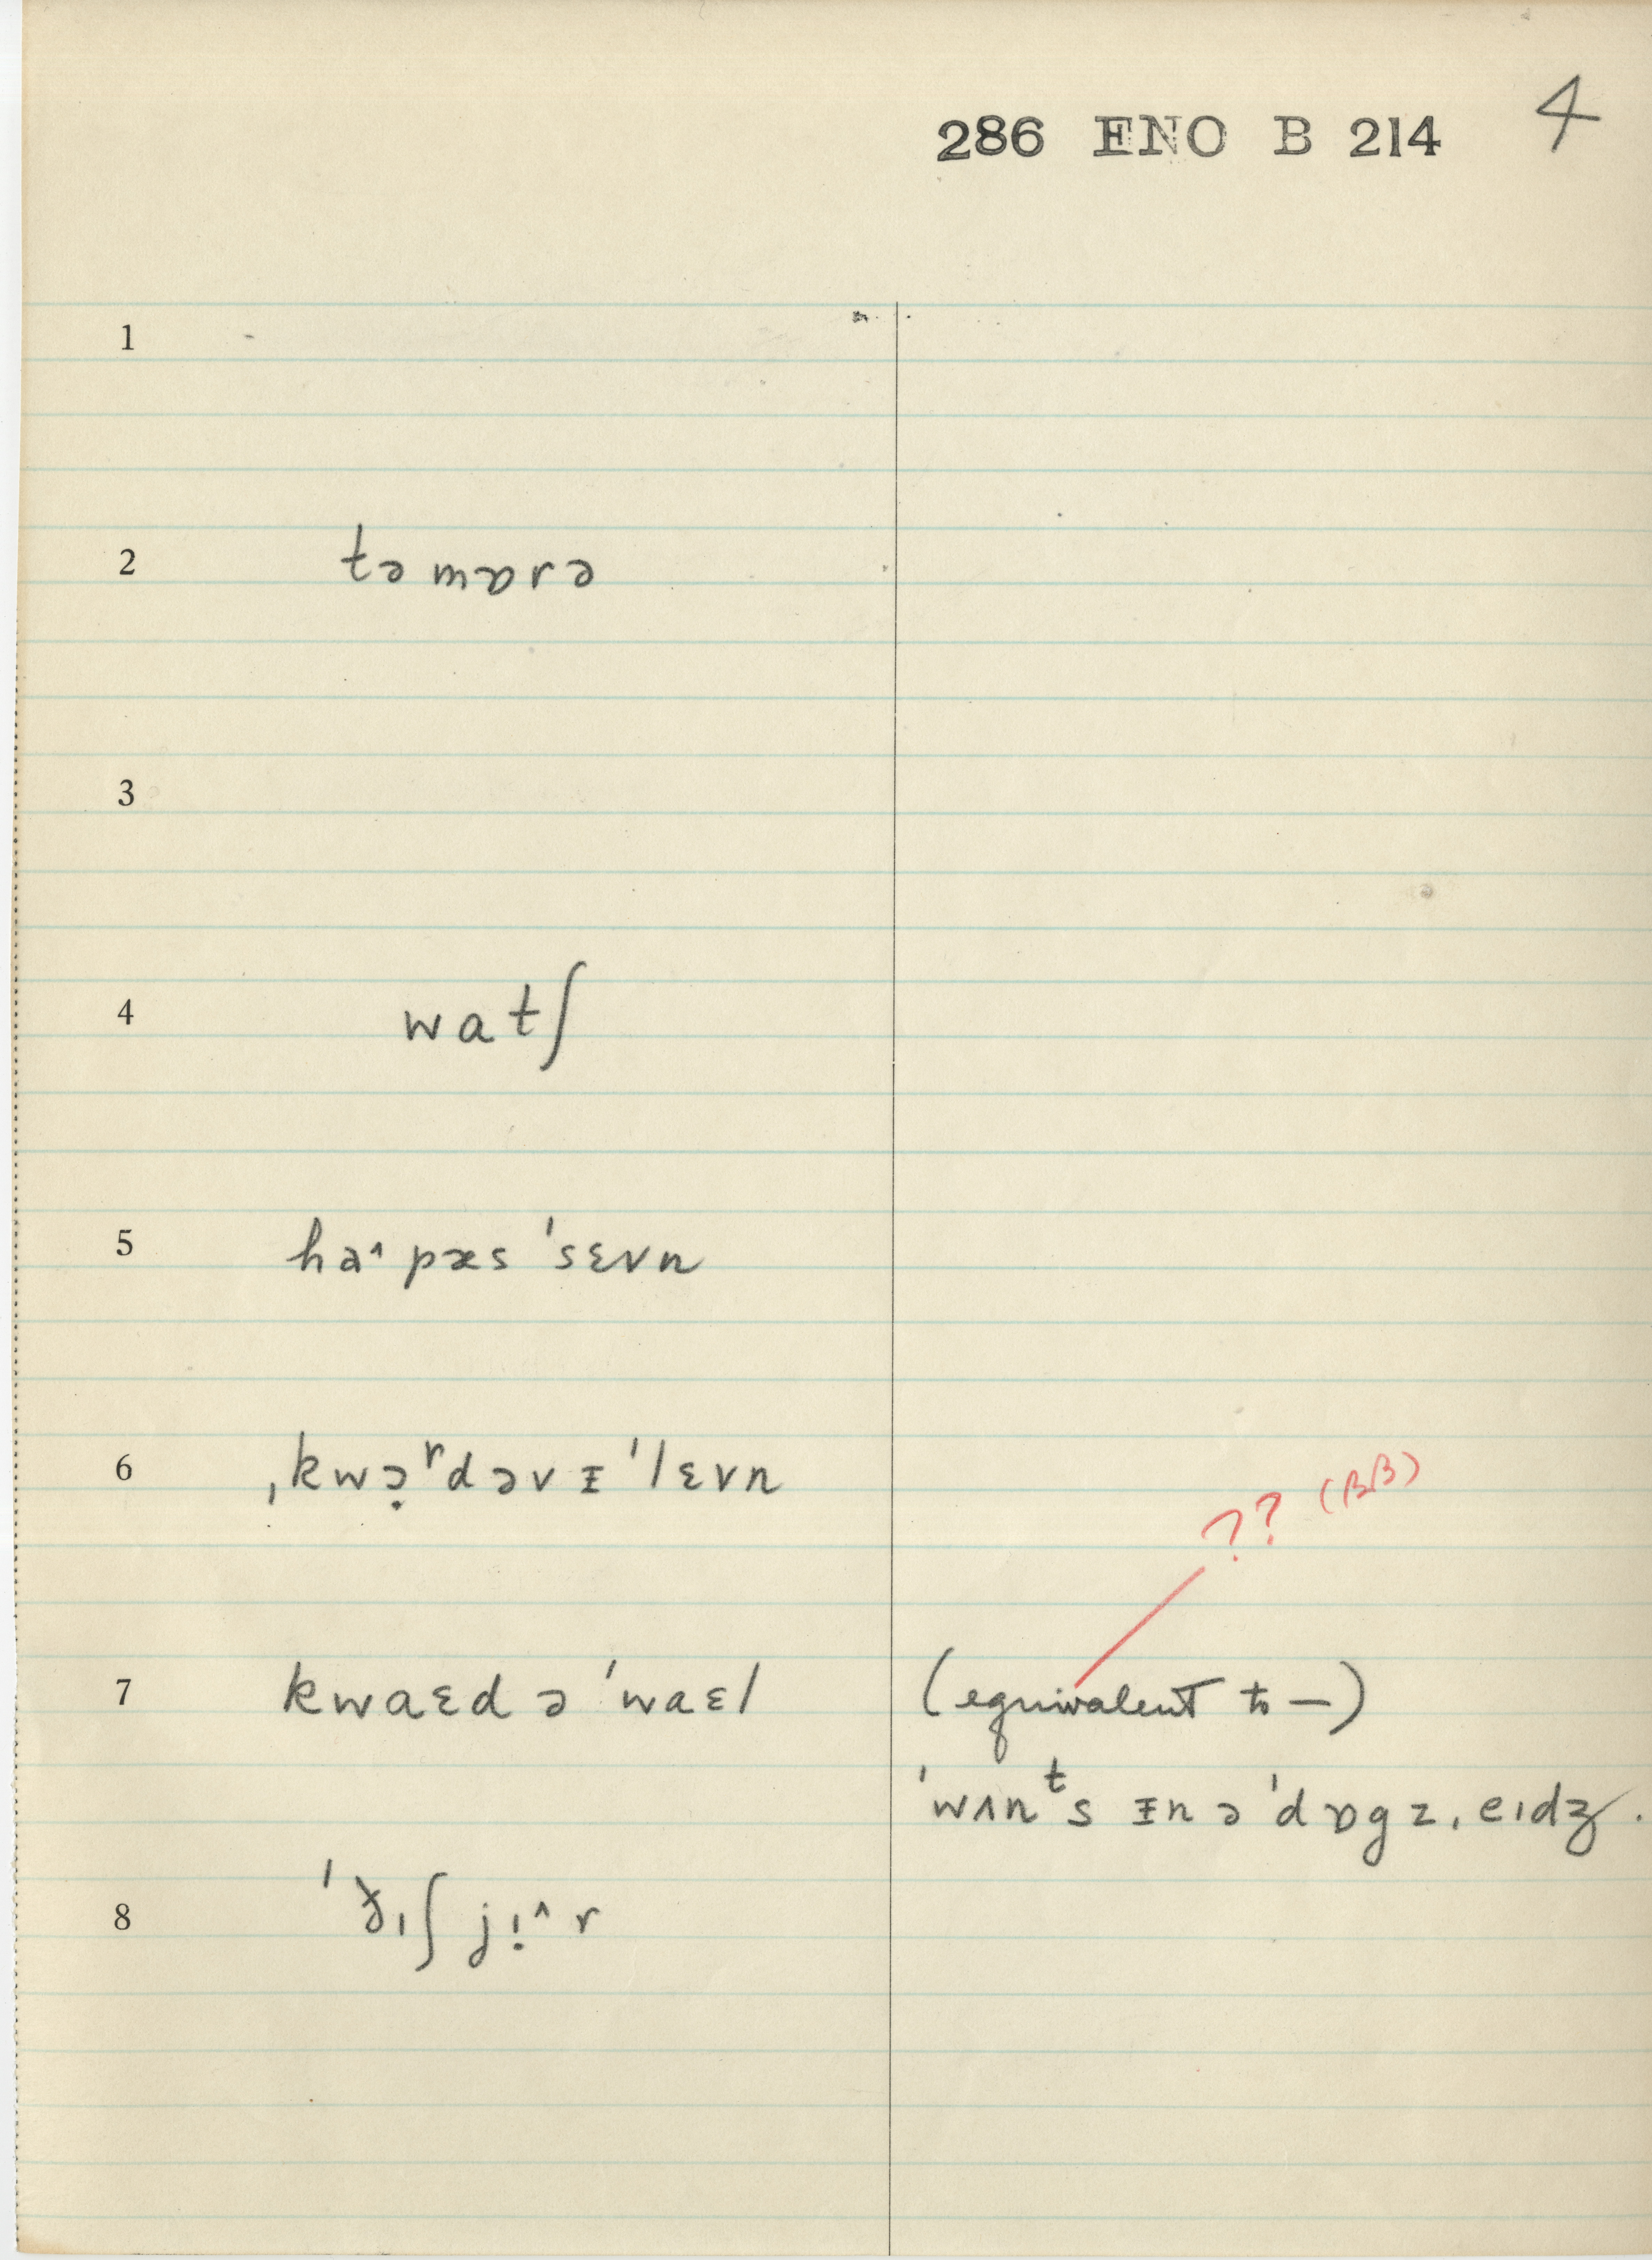 286 ENO B 214 4
1
2 təmɒrə
3
4 watʃ
5 ha˄ pæs ˈsɛvn
6 ˌkwə̣ʳdəv ᵻˈlɛvn
?? (BB)
7 kwaɛd ə ˈwaɛl (equivalent to —)
ˈwʌnᵗs ᵻn ə ˈdɒgz ˌeɪdʒ.
8 ˈðɪʃ jɪ̣˄ r